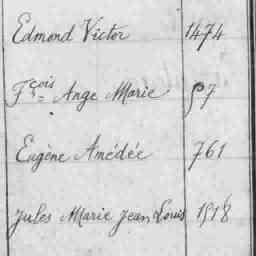 Edmond Victor 1474
Fçois Ange Marie 57
Eugène Amédée 761
Jules Marie Jean Louis 1518